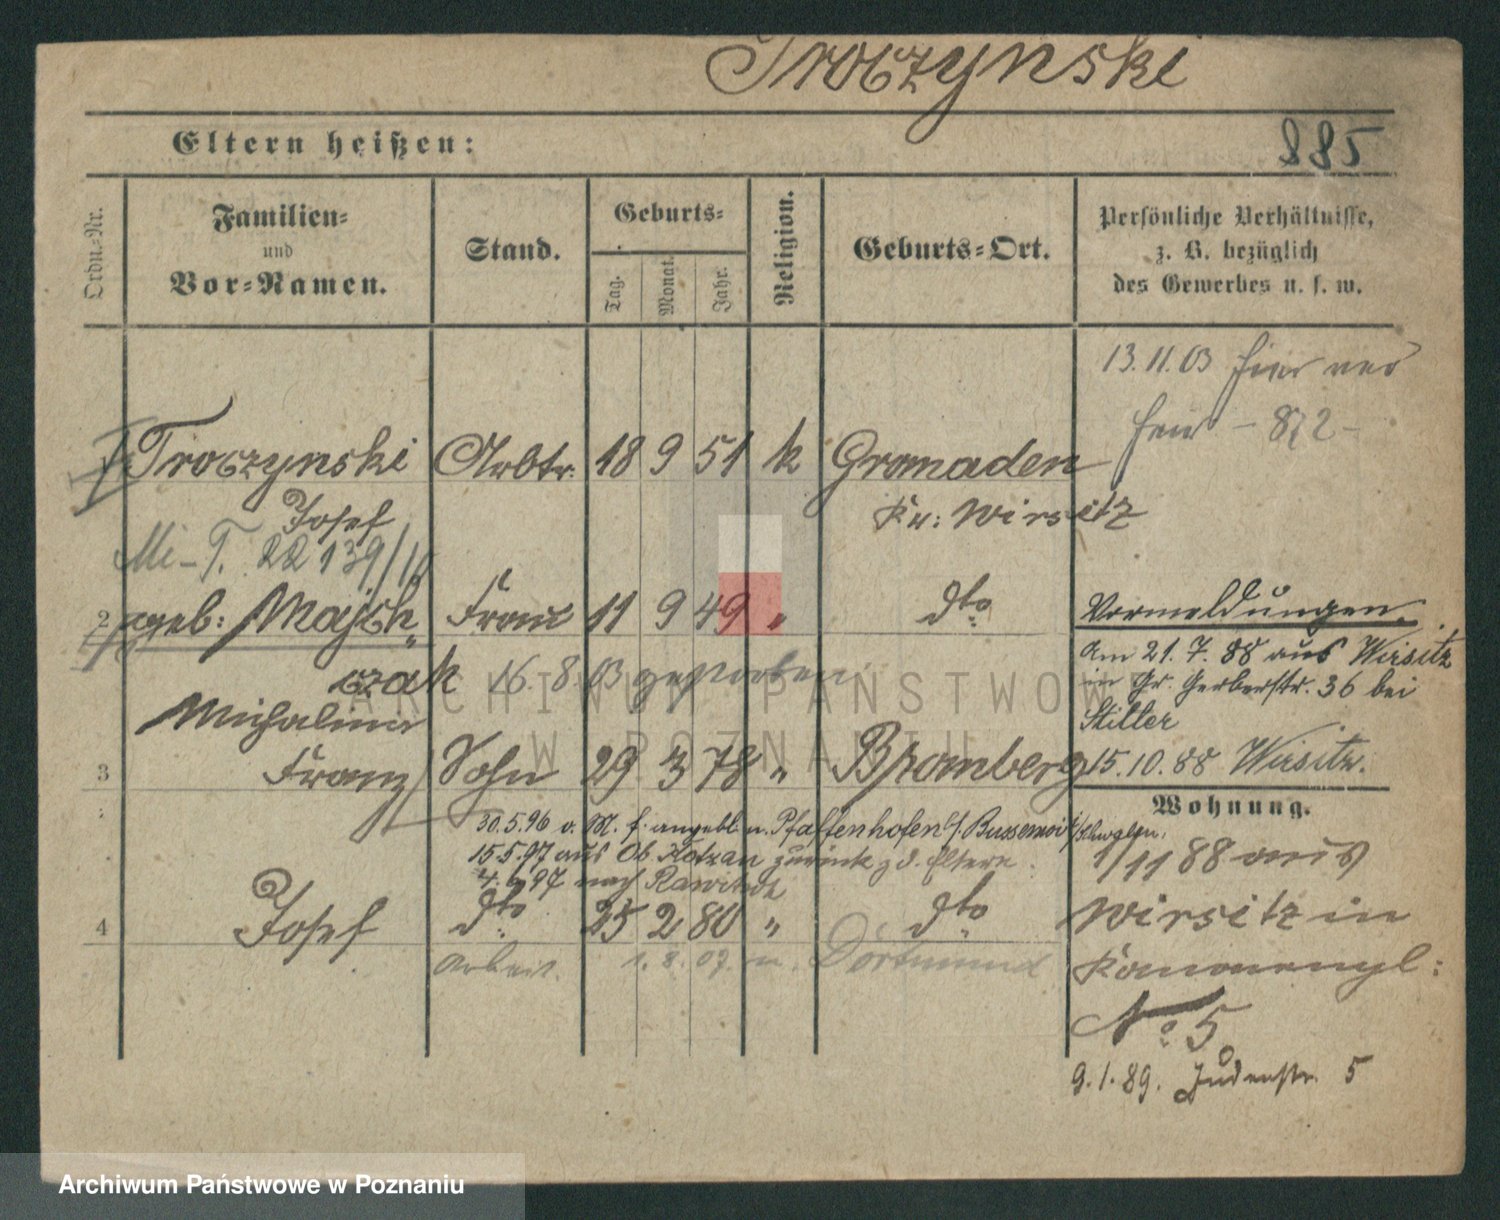 Troczynski
885
Eltern heißen:
Ordn.-Nr.
Familien-
und
Vor-Namen.
Stand.
Geburts-
Tag.
Monat.
Jahr.
Religion.
Geburts-Ort.
Persönliche Verhältnisse,
z. B. bezüglich
des Gewerbes u. s. w.
13.11.03
- 872 -
1 Troczynski Arbtr. 18 9 51 k Gromaden
Josef Kr: Wirsitz
Mi-T. 22 139/
2 geb: Majch- Frau 11 9 49 " dto
czak 16. 8. 03 gestorben
Michalina
3 Franz Sohn 29 3 78 " Bromberg
30.5.96 v. M. f. angebl. n. Pfaffenhofen
15.5.97 aus Ob. Kotzan zurück z d. Eltern
97 nach Rawitsch
4 Josef dto 25 2 80 " dto
Arbeit. 1. 8. 07. n. Dortmund
Vormeldungen.
Am 21. 7. 88 aus Wirsitz
in Gr. Gerberstr. 36 bei
Stiller
15.10.88 Wirsitz.
Wohnung.
1/11 88 aus
Wirsitz in
No 5
9.1.89. Judenstr. 5
ARCHIWUM PAŃSTWOWE
W POZNANIU
Archiwum Państwowe w Poznaniu